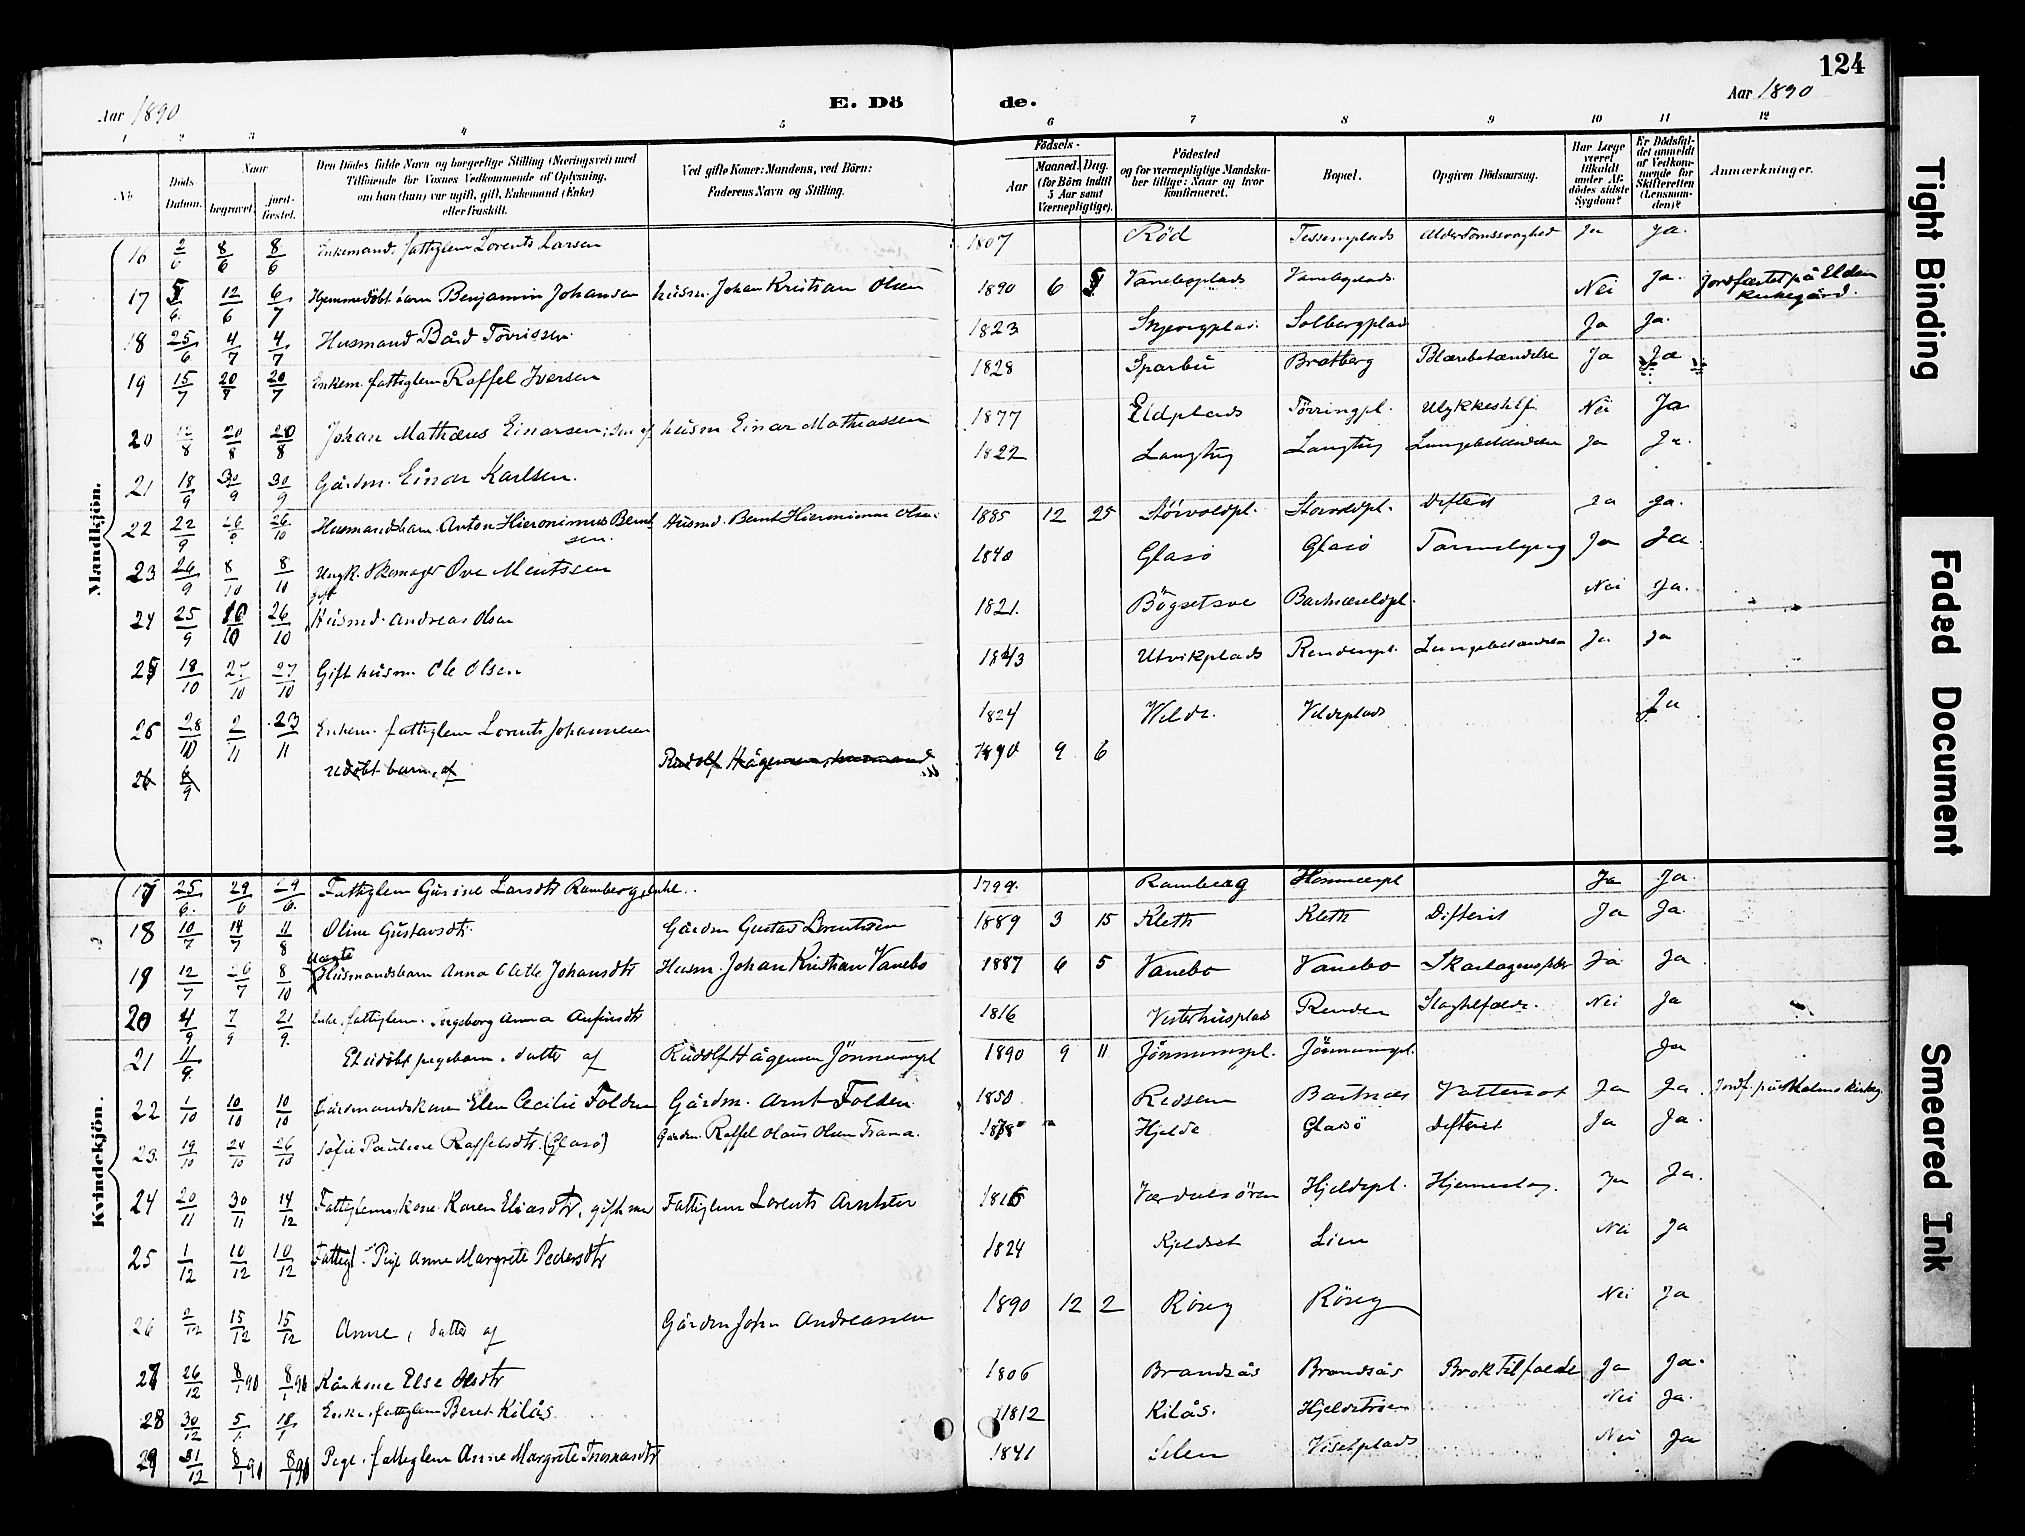 124
Aar 1890 E. Dö de. Aar 1890
1 2 3 4 5 6 7 8 9 10 11 12
No.
Döds Datum.
Naar
begravet.
jord-fæstet.
Den Dödes fulde Navn og borgerlige Stilling (Næringsvei) med
Tilföiende for Voxnes Vedkommende af Oplysning,
om han (hun) var ugift, gift, Enkemand (Enke)
eller fraskilt.
Ved gifte Koner: Mandens, ved Börn:
Faderens Navn og Stilling.
Födsels-
Aar
Maaned. Dag.
(for Börn indtil
5 Aar samt
Værnepligtige).
Födested
og for værnepligtige Mandska-
ber tillige: Naar og hvor
konfirmeret.
Bopæl.
Opgiven Dödsaarsag.
Har Læge
været
tilkaldt
under Af-
dödes sidste
Sygdom?
Er Dödsfal-
det anmeldt
af Vedkom-
mende for
Skifteretten
(Lensman-
den)?
Anmærkninger.
Mandkjön.
16 2/6 8/6 8/6 Enkemand. fattiglem Lorents Larsen 1807 Röd Tessemplads Alderdomssvaghed Ja Ja.
17 5/6 12/6 6/7 Hjemmedöbt barn Benjamin Johansen husm. Johan Kristian Olsen 1890 6 5 Vaneboplads Vaneboplads. Nei Ja. Jordfæstet på Elden
Kirkegård.
18 25/6 4/7 4/7 Husmand Bård Torrissen 1823 Solbergplad Ja Ja.
19 15/7 20/7 Enkem. fattiglem Raffel Iversen 1828 Sparbu Bratberg Blærebetændelse Ja Ja
20 20/8 20/8 Johan Mathæus Einarsen, sön af husm Einar Mathiassen 1877 Eldplads Törringpl. Ulykkestilf. Nei Ja
21 18/9 30/9 30/9 Gårdm. Einar Karlsen. 1822 Langtvy Langtvy Lungebetændelse Ja Ja.
22 22/9 26/10 Husmandsbarn Anton Hieronimus Bernt-
sen. Husmd. Bernt Hieronimus Olsen 1885 12 25 Störvoldpl. Storvoldpl. Difterit Ja Ja.
23 26/9 8/10 8/10 Ungk. Skomager Ove Mentssen 1840 Glasö Glasö Ja Ja.
24 25/9 10/10 26/10 gift
Husmd. Andreas Olsen 1821. Bartnæseldpl. Nei Ja.
25 18/10 27/10 27/10 Gift husm. Ole Olsen 1843 Utvikplads Rendenpl. Lungebetændelse Ja Ja
26 28/10 2/11 23/11 Enkem. fattiglem Lorents Johannesen 1824 Velde. Veldeplads Ja
26 6/9 Udöbt barn, af Rudolf Hågensen, husmand 1890 9 6
Kvindekjön.
17 25/6. 29/6 29/6. Fattiglem Gurine Larsdtr Ramberg, enke. 1799. Ramberg Ja Ja.
18 10/7 14/7 11/8 Oline Gustavsdtr. Gårdm Gustav Lorentssen 1889 3 15 Kleth Kleth Difterit Ja Ja.
19 12/7 26/7 8/10 Husmandsbarn Anna Olette Johansdtr Husm. Johan Kristian Vanebo 1887 6 5 Vanebo Vanebo Skarlagensfeber Ja Ja
20 4/9 7/9 21/9. Enke. fattiglem. Ingeborg Anna Anfinsdtr 1816 Vesterhusplad Renden Slagtilfælde. Nei Ja
21 11/9. Et udöbt pigebarn. datter af Rudolf Hågensen Jönnumspl 1890 9 11 Jönnumspl. Jönnumspl. Ja
22 1/10 10/10 10/10 Gårdmandskone Elen Cecilie Folden Gårdm. Arnt Folden 1850. Redsem Bartnæs Vattersot Ja Ja. Jordf. på Malmo kirkeg
23. 19/10 24/10 26/10 Sofie Pauline Raffelsdtr. (Glasö) Gårdm. Raffel Olaus Olsen Trana. 1878 Hjelde Glasö Difterit Ja Ja.
24 20/11 30/11 14/12 Fattiglems kone Karen Eliasdtr, gift med Fattiglem Lorents Arntsen 1816 Værdalsören Hjeldepl. Hjerneslag. Ja Ja.
25 1/12 10/12 10/12 Fattigl. Pige Anne Margrete Pedersdtr 1824 Kjeldset Lien Nei Ja
26 2/12 15/12 15/12 Anne, datter af Gårdm John Andreassen 1890 12 2 Röseg Röseg Nei Ja
27 26/12 8/1 90 8/1 90 Kårkone Else Olsdtr 1806 Brandsås Brandsås Brok Tilfælde Ja Ja.
28 30/12 5/1 18/1 Enke. fattiglem Beret Kilås 1812 Kilås. Nei Ja.
29 31/12 8/1 90 8/1 90 Pige. fattiglem Anne Margrete Thomasdtr 1841 Selen Viselplads Nei Ja
Tight Binding
Faded Document
Smeared Ink